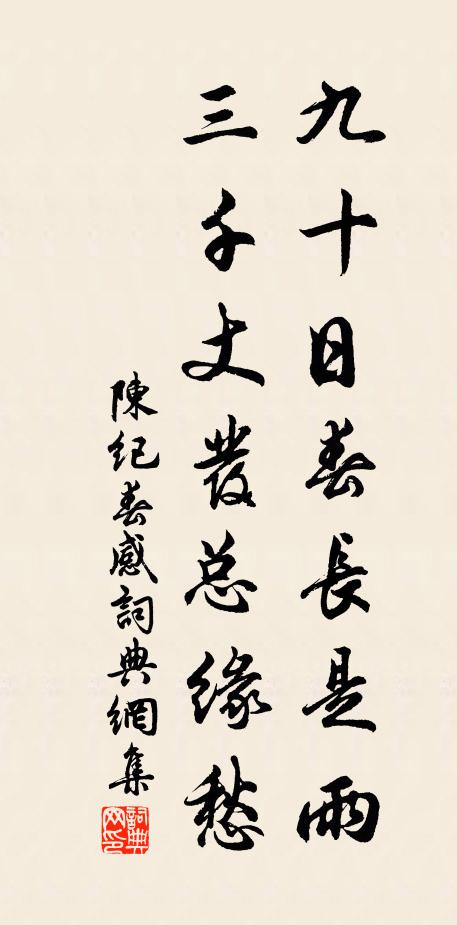 九十日春長是雨
三千丈發总緣愁
陳纪春感詞典網集
詞典网印